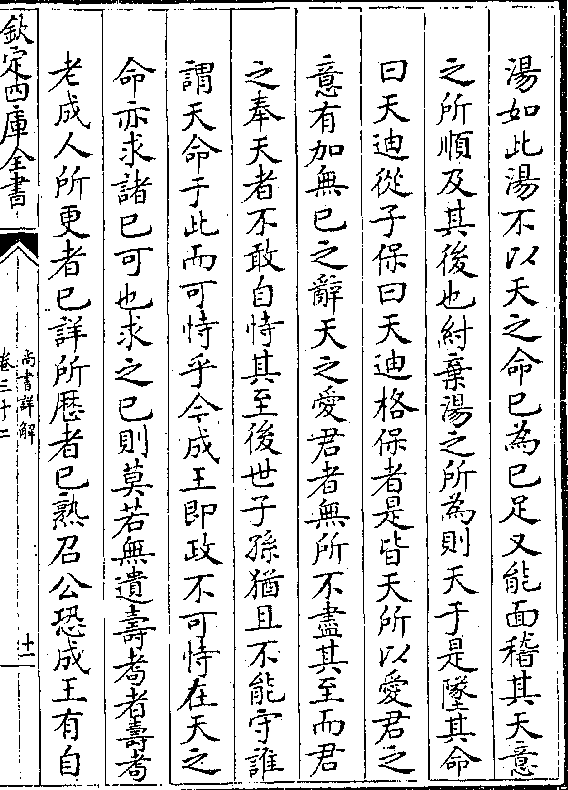 湯如此湯不以天之命已為已足又能面稽其天意
之所順及其後也紂棄湯之所為則天于是墜其命
曰天迪從子保曰天迪格保者是皆天所以愛君之
意有加無已之辭天之愛君者無所不盡其至而君
之奉天者不敢自恃其至後世子孫猶且不能守誰
謂天命于此而可恃乎今成王即政不可恃在天之
命亦求諸已可也求之已則莫若無遺壽耇者壽耇
老成人所更者已詳所歴者已熟召公恐成王有自
欽定四庫全書
尚書詳解
卷三十二
十一